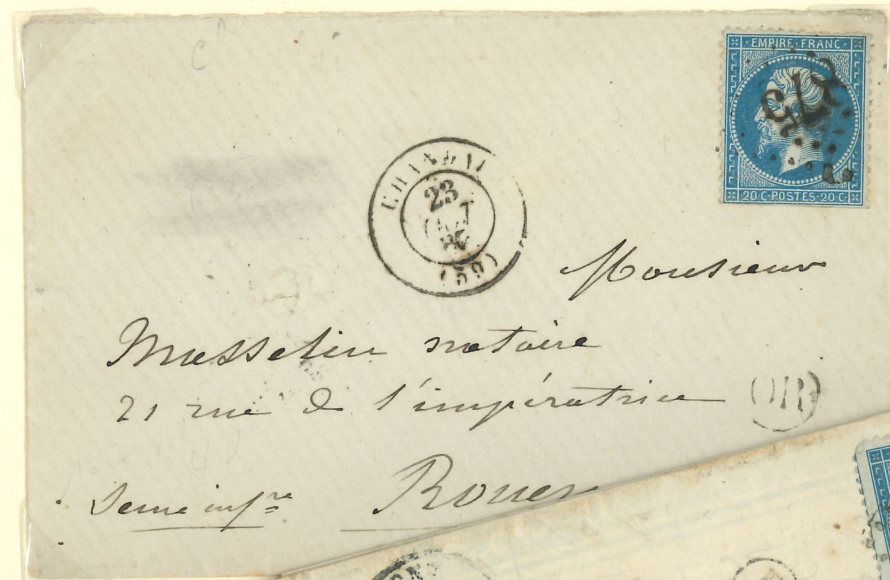 EMPIRE·FRANC
20 C·POSTES·20 C
23
(59)
Monsieur
Masselin notaire
21 rue de l'impératrice
OR
Rouen
Seine infre